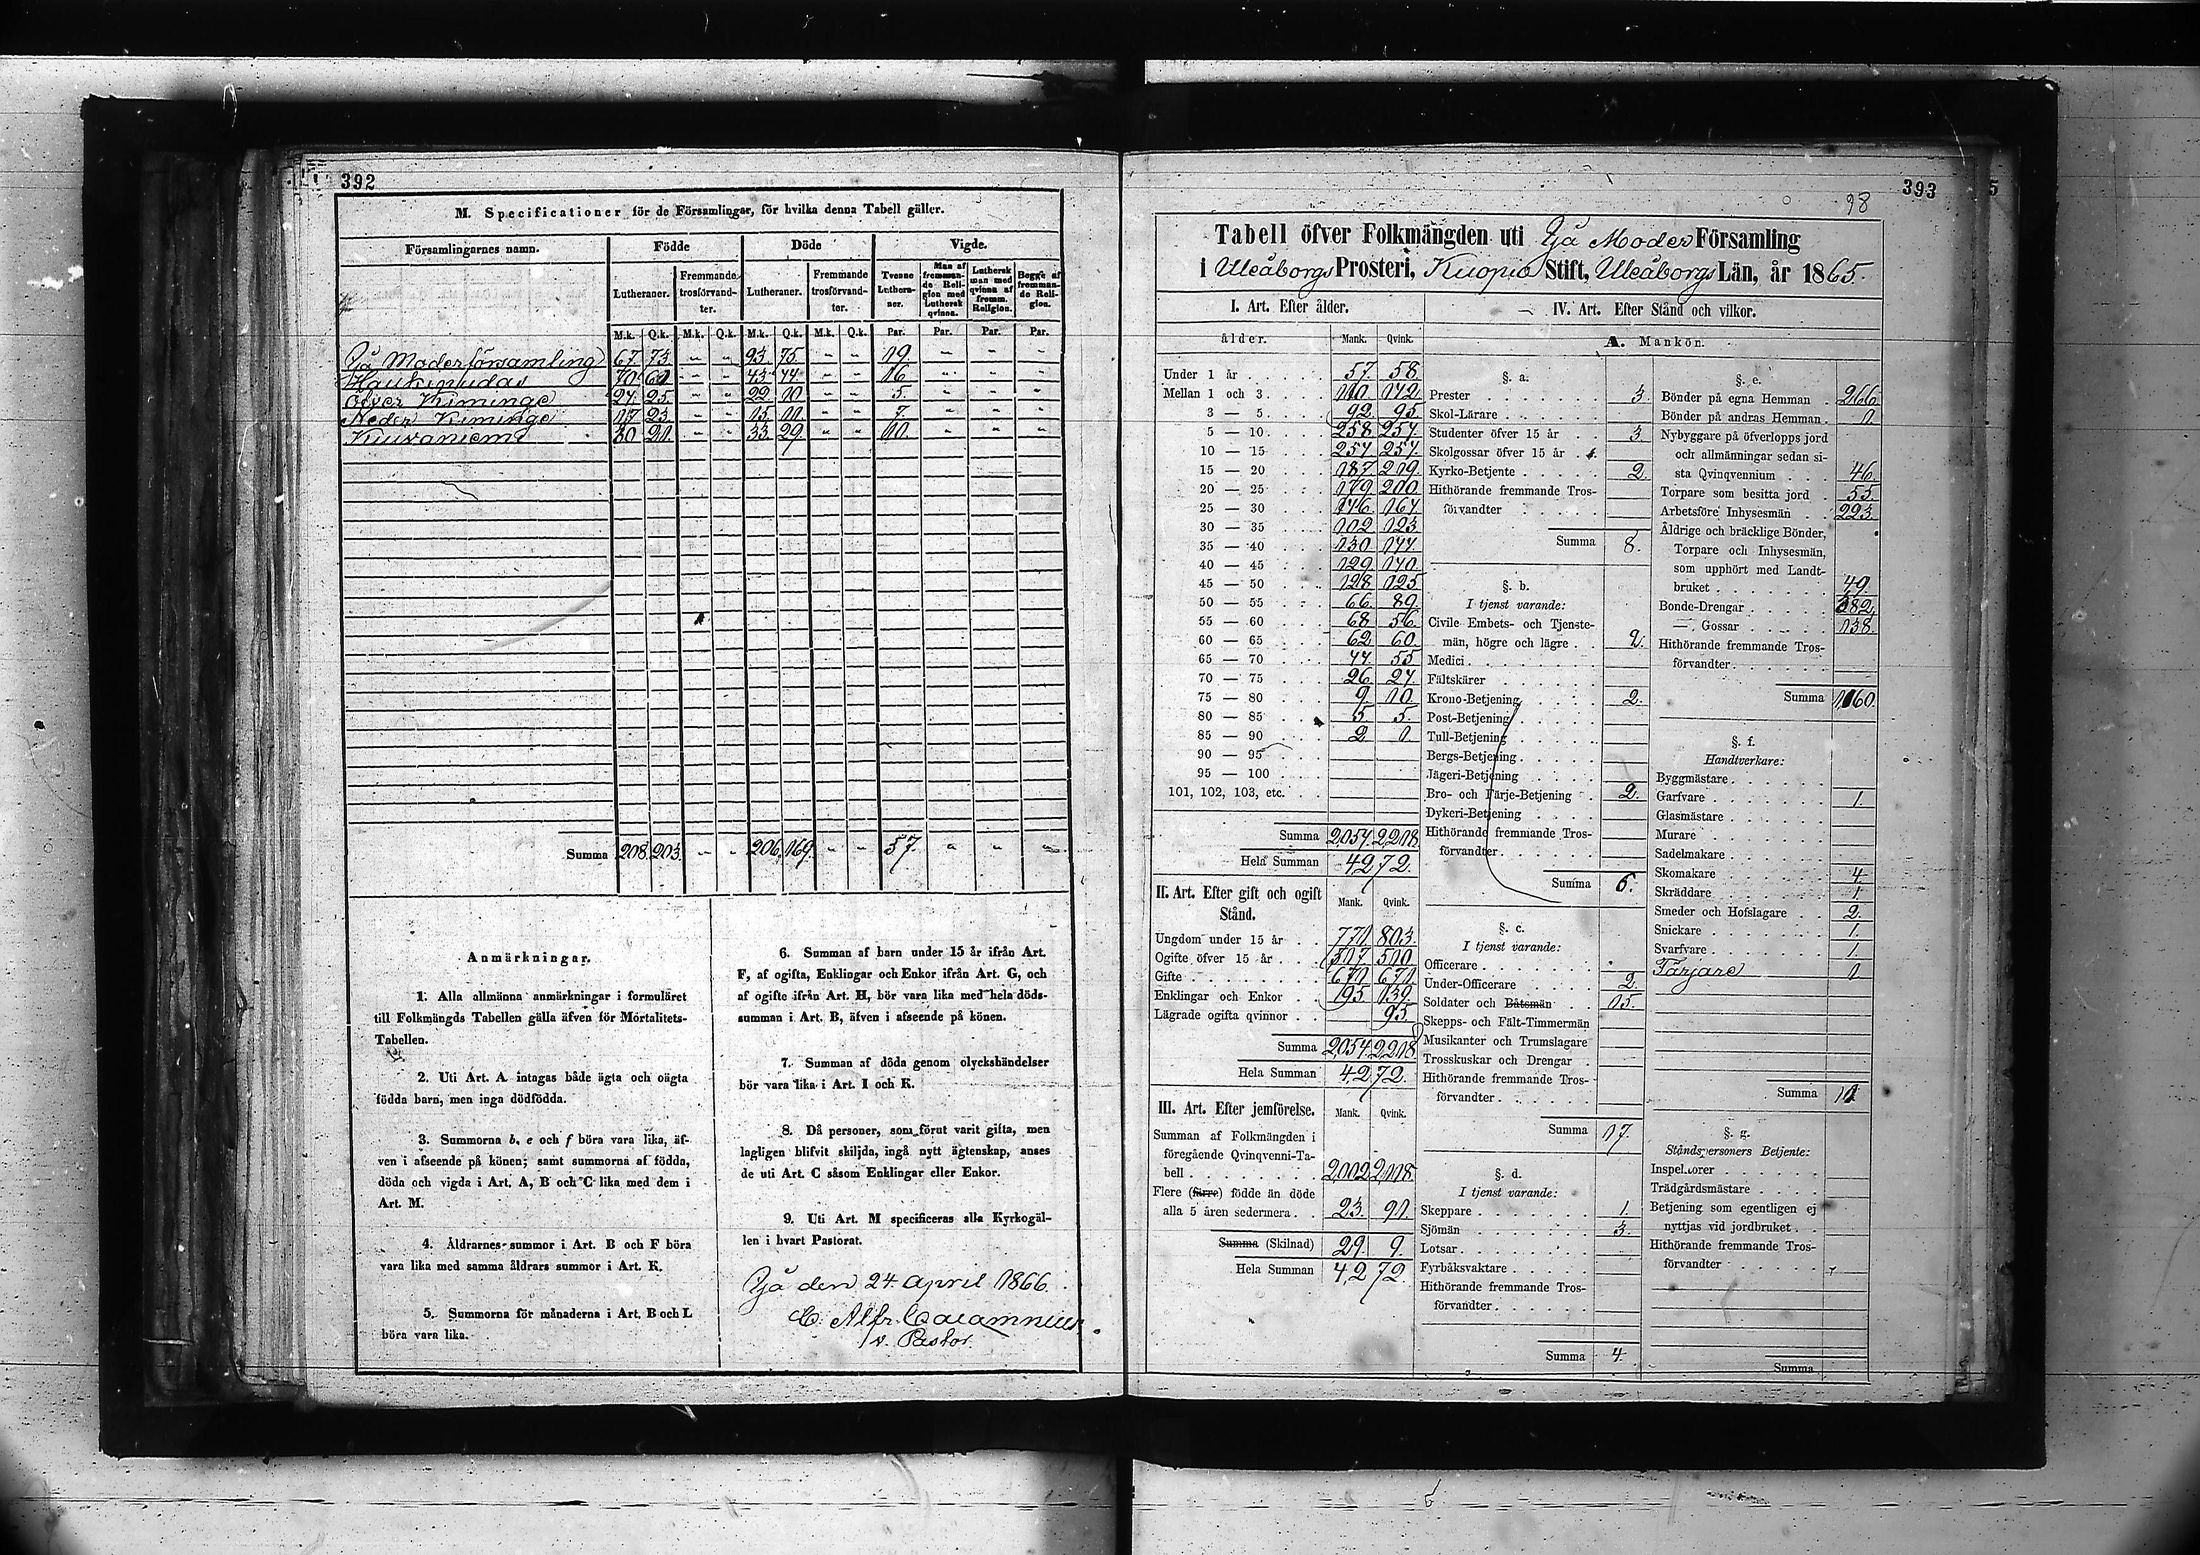 392
M. Specificationer för de Församlingar, för hvilka denna Tabell gäller.
Församlingarnes namn. Födde Döde Vigde.
Lutheraner. Fremmande trosförvandter. Lutheraner. Fremmande trosförvandter. Tvenne Lutheraner. Man af fremmande Religion med Luthersk qvinna. Luthersk man med qvinna af fremm. Religion. Begge af fremmande Religion.
M.k. Q.k. M.k. Q.k. M.k. Q.k. M.k. Q.k. Par. Par. Par. Par.
Ijå Moderförsamling 67 73 " " 93 75 " " 19. " " "
Haukipudas 70 61 " " 43 44 " " 16 " " "
Öfver Kiminge 24 25 " " 22 10 " " 5. " " "
Neder Kiminge 17 23 " " 15 11 " " 7. " " "
Kuivaniemi 30 21 " " 33 29 " " 10. " " "
Summa 208. 203. " " 206. 169. " " 57. " " "
Anmärkningar.
1. Alla allmänna anmärkningar i formuläret
till Folkmängds Tabellen gälla äfven för Mortalitets-
Tabellen.
2. Uti Art. A intagas både ägta och oägta
födda barn, men inga dödfödda.
3. Summorna b, e och f böra vara lika, äf-
ven i afseende på könen; samt summorna af födda,
döda och vigda i Art. A, B och C lika med dem i
Art. M.
4. Åldrarnes summor i Art. B och F böra
vara lika med samma åldrars summor i Art. K.
5. Summorna för månaderna i Art. B och L
böra vara lika.
6. Summan af barn under 15 år ifrån Art.
F, af ogifta, Enklingar och Enkor ifrån Art. G, och
af ogifte ifrån Art. H, bör vara lika med hela döds-
summan i Art. B, äfven i afseende på könen.
7. Summan af döda genom olyckshändelser
bör vara lika i Art. I och K.
8. Då personer, som förut varit gifta, men
lagligen blifvit skiljda, ingå nytt ägtenskap, anses
de uti Art. C såsom Enklingar eller Enkor.
9. Uti Art. M specificeras alla Kyrkogäl-
len i hvart Pastorat.
Ijå den 24 April 1866.
C. Alfr. Calamnius
v. Pastor.
393
98
Tabell öfver Folkmängden uti Ijå Moder Församling
i Uleåborgs Prosteri, Kuopio Stift, Uleåborgs Län, år 1865.
I. Art. Efter ålder.
ålder. Mank. Qvink.
Under 1 år 57. 58
Mellan 1 och 3 110 142
3 — 5 92. 95
5 — 10 258 254
10 — 15 254 254
15 — 20 187 219
20 — 25 179 200
25 — 30 146 164
30 — 35 102 123
35 — 40 130 144
40 — 45 129 140
45 — 50 128 125
50 — 55 66. 89
55 — 60 68 56
60 — 65 62. 60
65 — 70 44 55
70 — 75 26 24
75 — 80 9 10
80 — 85 5 5.
85 — 90 2 1
90 — 95
95 — 100
101, 102, 103, etc.
Summa 2054. 2218
Hela Summan 4272.
II. Art. Efter gift och ogift
Stånd. Mank. Qvink.
Ungdom under 15 år 771 803.
Ogifte öfver 15 år 510
Gifte 671 671
Enklingar och Enkor 139
Lägrade ogifta qvinnor 95
Summa 2054. 2218
Hela Summan 4272.
III. Art. Efter jemförelse. Mank. Qvink.
Summan af Folkmängden i
föregående Qvinqvenni-Ta-
bell 2,002 2118.
Flere (färre) födde än döde
alla 5 åren sedermera 23. 91
Summa (Skilnad) 29. 9.
Hela Summan 4,272.
IV. Art. Efter Stånd och vilkor.
A. Mankön.
§. a.
Prester 3.
Skol-Lärare
Studenter öfver 15 år 3
Skolgossar öfver 15 år
Kyrko-Betjente 2
Hithörande fremmande Tros-
förvandter
Summa 8.
§. b.
I tjenst varande:
Civile Embets- och Tjenste-
män, högre och lägre 2.
Medici
Fältskärer
Krono-Betjening 2.
Post-Betjening
Tull-Betjening
Bergs-Betjening
Jägeri-Betjening
Bro- och Färje-Betjening 2.
Dykeri-Betjening
Hithörande fremmande Tros-
förvandter
Summa 6.
§. c.
I tjenst varande:
Officerare
Under-Officerare 2.
Soldater och Båtsmän 15.
Skepps- och Fält-Timmermän
Musikanter och Trumslagare
Trosskuskar och Drengar
Hithörande fremmande Tros-
förvandter
Summa 17.
§. d.
I tjenst varande:
Skeppare 1.
Sjömän 3.
Lotsar
Fyrbåksvaktare
Hithörande fremmande Tros-
förvandter
Summa 4.
§. e.
Bönder på egna Hemman 266
Bönder på andras Hemman 1
Nybyggare på öfverlopps jord
och allmänningar sedan si-
sta Qvinqvennium 46.
Torpare som besitta jord 55
Arbetsföre Inhysesmän 223.
Åldrige och bräcklige Bönder,
Torpare och Inhysesmän,
som upphört med Landt-
bruket 49.
Bonde-Drengar 382.
— Gossar 138.
Hithörande fremmande Tros-
förvandter
Summa 1160.
§. f.
Handtverkare:
Byggmästare
Garfvare 1.
Glasmästare
Murare
Sadelmakare
Skomakare 4
Skräddare 1.
Smeder och Hofslagare 2.
Snickare 1
Svarfvare 1
Färjare 1
Summa 11
§. g.
Ståndspersoners Betjente:
Inspektorer
Trädgårdsmästare
Betjening som egentligen ej
nyttjas vid jordbruket
Hithörande fremmande Tros-
förvandter
Summa